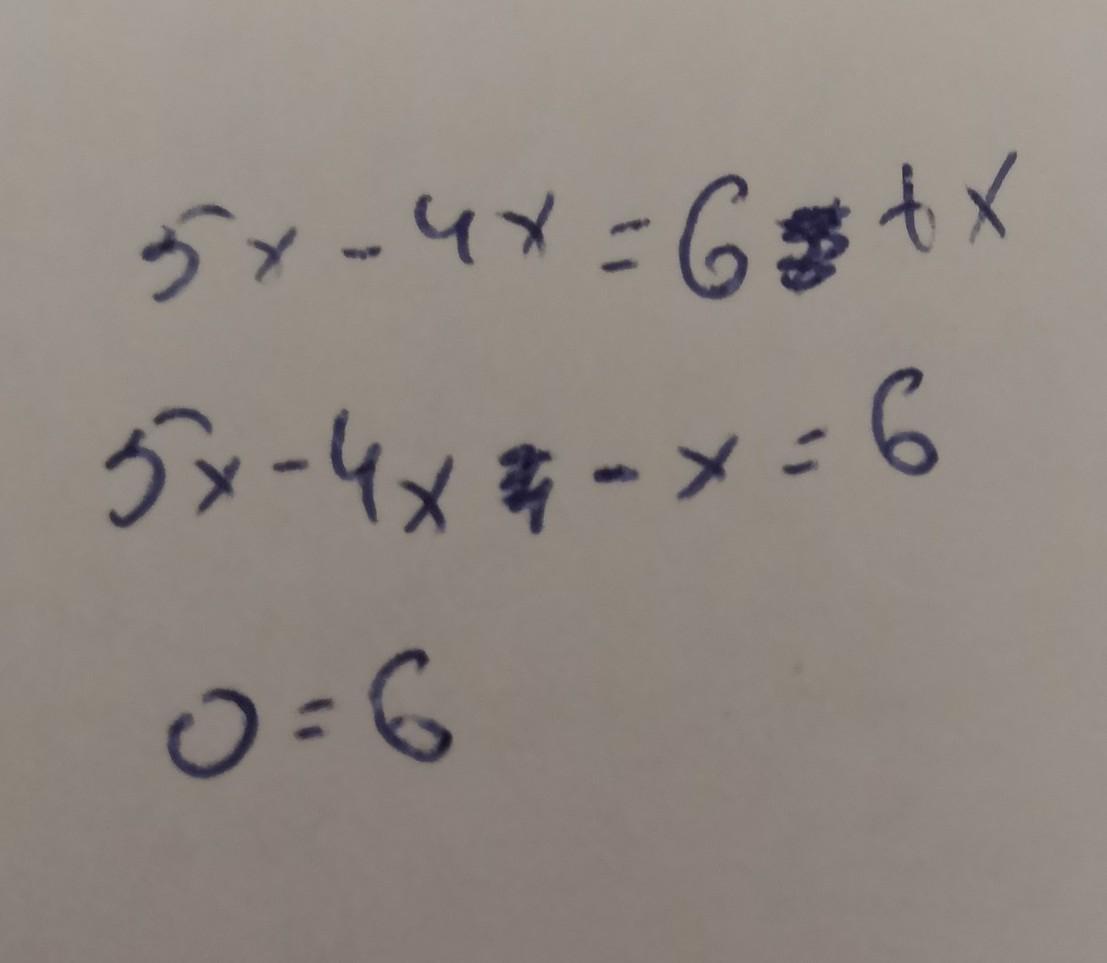 5x - 4x = 6 + x
5x - 4x - x = 6
0 = 6